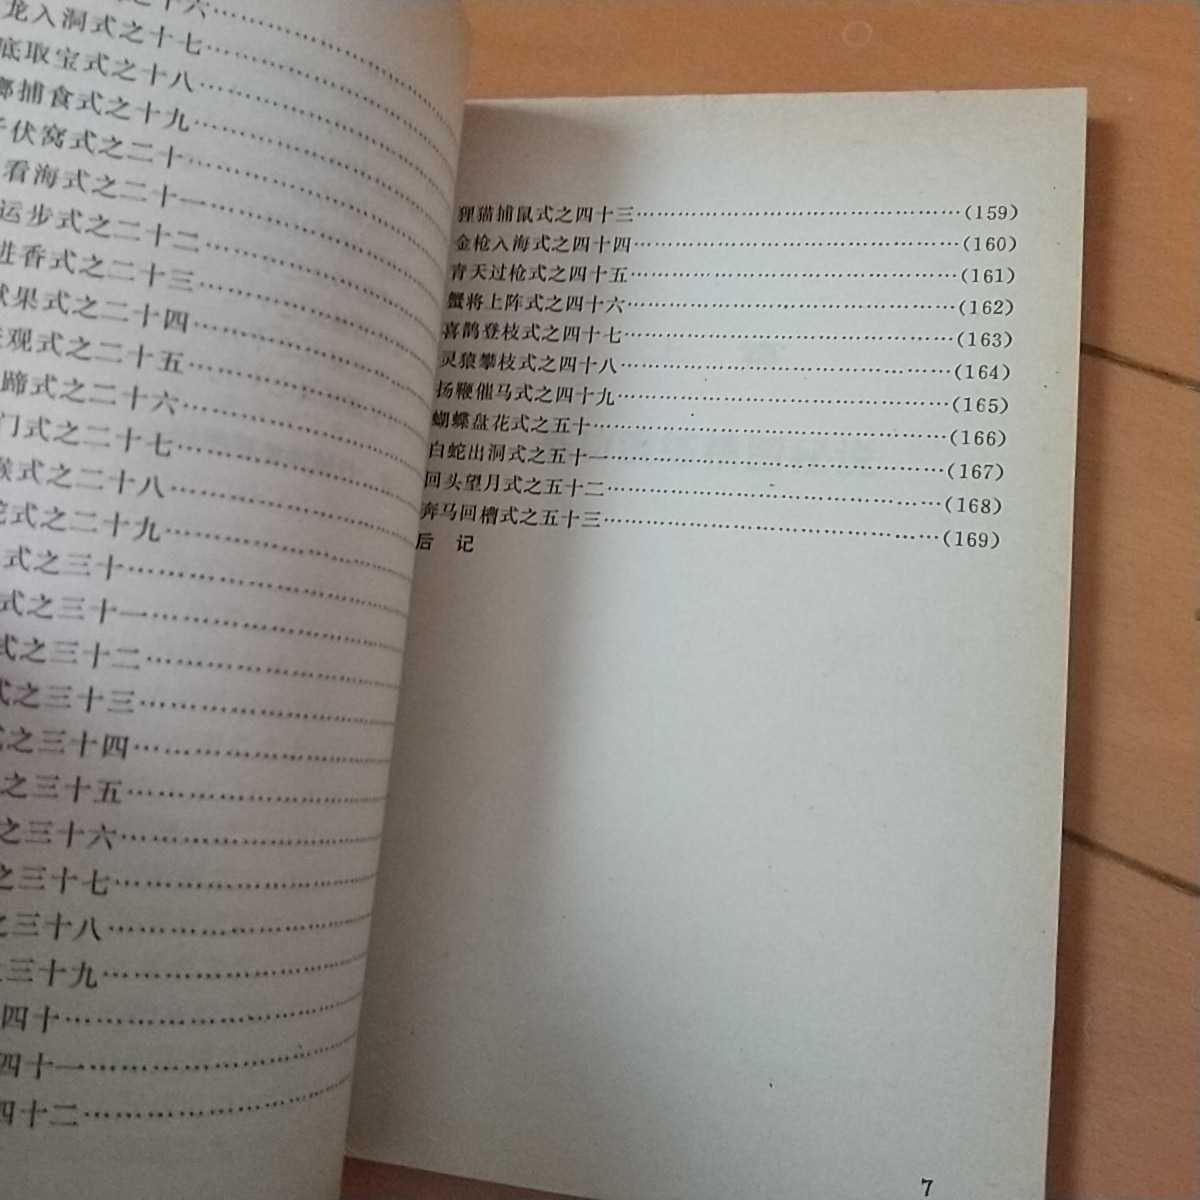 十六
龙入洞式之十七
底取宝式之十八
捕食式之十九
伏窝式之二十
看海式之二十一
运步式之二十二
进香式之二十三
献果式之二十四
观式之二十五
蹄式之二十六
门式之二十七
猴式之二十八
式之二十九
式之三十
式之三十一
式之三十二
式之三十三
式之三十四
之三十五
之三十六
之三十七
之三十八
三十九
四十
四十一
四十二
狸猫捕鼠式之四十三……(159)
金枪入海式之四十四……(160)
青天过枪式之四十五……(161)
蟹将上阵式之四十六……(162)
喜鹊登枝式之四十七……(163)
灵狼攀枝式之四十八……(164)
扬鞭催马式之四十九……(165)
蝴蝶盘花式之五十……(166)
白蛇出洞式之五十一……(167)
回头望月式之五十二……(168)
奔马回槽式之五十三……(169)
后 记
7